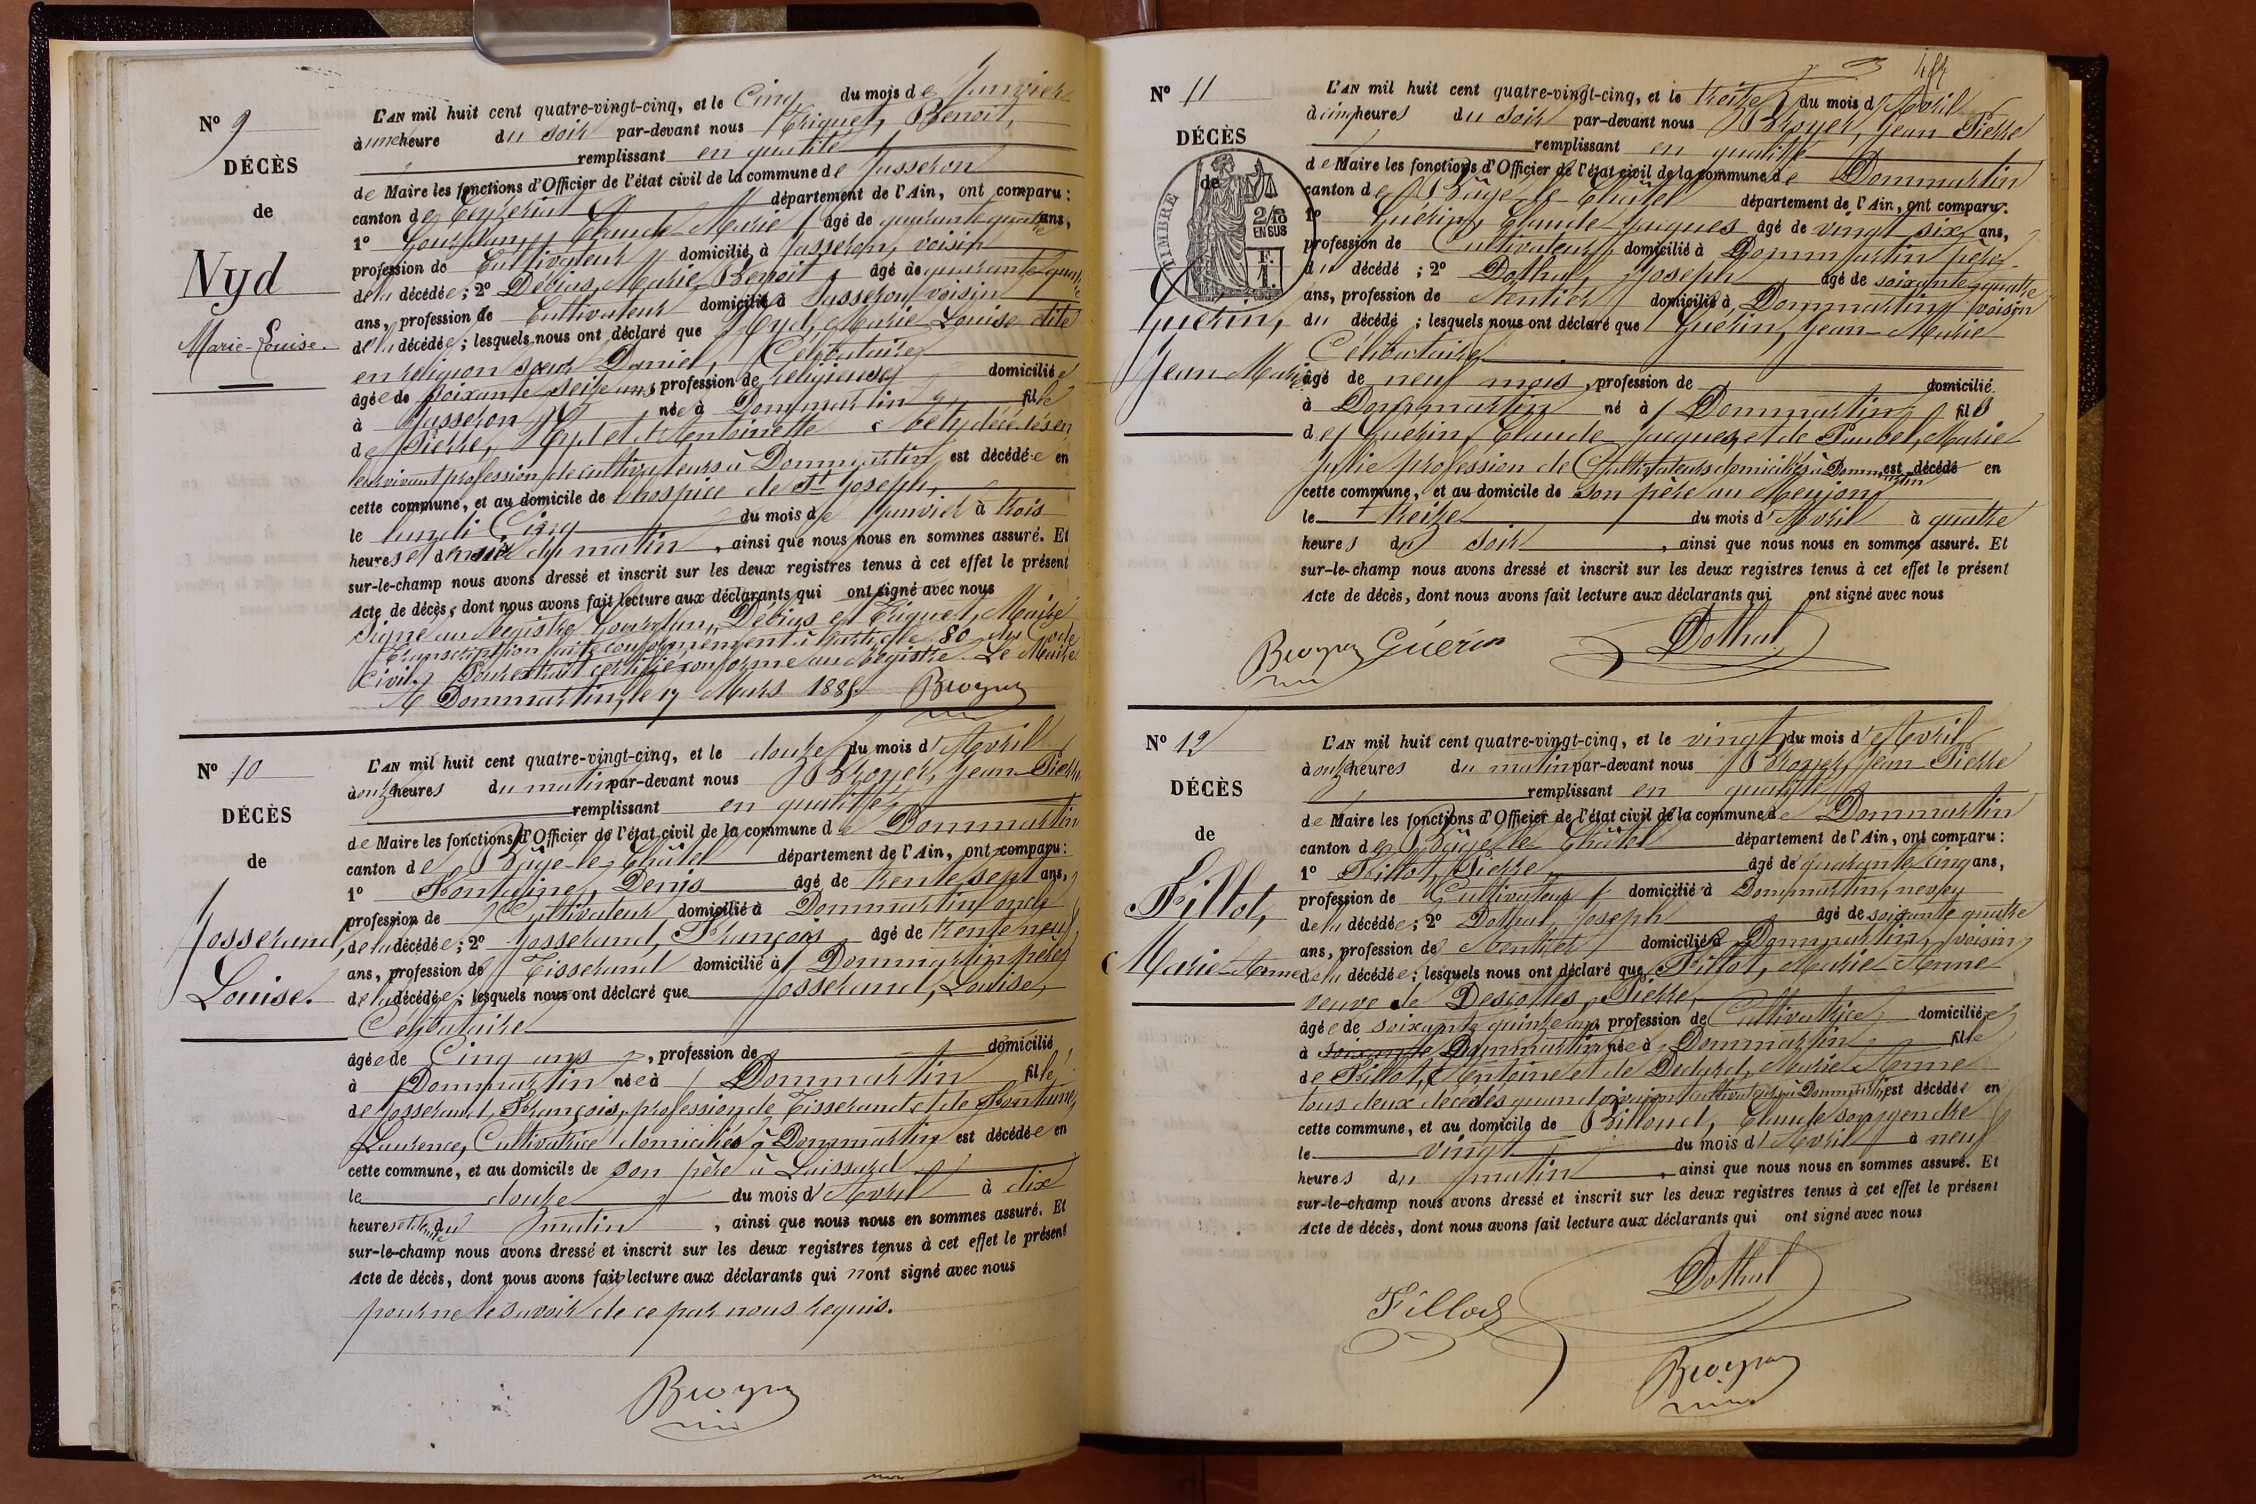 N° 9
DÉCÈS
de
Nyd
Marie-Louise.
L'AN mil huit cent quatre-vingt-cinq, et le Cinq du mois de Janvier
à une heure du soir par-devant nous Triquet, Benoit,
remplissant en qualité
de Maire les fonctions d'Officier de l'état civil de la commune de Jasseron
canton de Ceyzeriat département de l'Ain, ont comparu :
1° Claude Marie âgé de quarante quatre ans,
profession de Cultivateur domicilié à Jasseron, voisin
de la décédée ; 2° Débias, Marie Benoit âgé de quarante quatre
ans, profession de Cultivateur domicilié à Jasseron voisin
de la décédée ; lesquels nous ont déclaré que Nyd, Marie Louise dite
en religion sœur Daniel, Célibataire
âgée de soixante seize ans profession de religieuse domiciliée
à Jasseron née à Dommartin fille
de Pierre, Nyd et d'Antoinette décédés en
leur vivant profession de cultivateurs à Dommartin est décédée en
cette commune, et au domicile de l'hospice de St Joseph,
le lundi Cinq du mois de Janvier à trois
heures et demie du matin, ainsi que nous nous en sommes assuré. Et
sur-le-champ nous avons dressé et inscrit sur les deux registres tenus à cet effet le présent
Acte de décès, dont nous avons fait lecture aux déclarants qui ont signé avec nous
Signé au Registre Débias et Triquet, Maire
Transcription faite conformément à l'article 80 du Code
Civil. Pour extrait certifié conforme au Registre. Le Maire
A Dommartin, le 17 Mars 1885. Broyer
N° 10
DÉCÈS
de
Josserand,
Louise.
L'AN mil huit cent quatre-vingt-cinq, et le douze du mois d'Avril
à onze heures du matin par-devant nous Broyer, Jean-Pierre
remplissant en qualité
de Maire les fonctions d'Officier de l'état civil de la commune de Dommartin
canton de Bâgé-le-Châtel département de l'Ain, ont comparu :
1° Fontaine, Denis âgé de trente sept ans,
profession de Cultivateur domicilié à Dommartin oncle
de la décédée ; 2° Josserand, François âgé de trente neuf
ans, profession de Tisserand domicilié à Dommartin père
de la décédée ; lesquels nous ont déclaré que Josserand, Louise,
Célibataire
âgée de Cinq ans, profession de domicilié
à Dommartin née à Dommartin fille
de Josserand, François, profession de Tisserand et de Fontaine,
Laurence, Cultivatrice domiciliés à Dommartin est décédée en
cette commune, et au domicile de son père à Laissard
le douze du mois d'Avril à dix
heures et demie du matin, ainsi que nous nous en sommes assuré. Et
sur-le-champ nous avons dressé et inscrit sur les deux registres tenus à cet effet le présent
Acte de décès, dont nous avons fait lecture aux déclarants qui n'ont signé avec nous
pour ne le savoir de ce par nous requis.
Broyer
N° 11
DÉCÈS
de
TIMBRE
2/10 EN SUS
Guérin,
Jean Marie
L'AN mil huit cent quatre-vingt-cinq, et le treize du mois d'Avril
à cinq heures du soir par-devant nous Broyer, Jean Pierre
remplissant en qualité
de Maire les fonctions d'Officier de l'état civil de la commune de Dommartin
canton de Bâgé-le-Châtel département de l'Ain, ont comparu.
1° Guérin, Claude Jacques âgé de vingt six ans,
profession de Cultivateur, domicilié à Dommartin père
du décédé ; 2° Dothal, Joseph âgé de soixante quatre
ans, profession de Rentier domicilié à Dommartin voisin
du décédé ; lesquels nous ont déclaré que Guérin, Jean-Marie
Célibataire
âgé de neuf mois, profession de domicilié
à Dommartin né à Dommartin fils
de Guérin, Claude Jacques, et de Paubel, Marie
Julie profession de Cultivateurs domiciliés à Dommartin est décédé en
cette commune, et au domicile de son père au Meujon
le treize du mois d'Avril à quatre
heures du soir, ainsi que nous nous en sommes assuré. Et
sur-le-champ nous avons dressé et inscrit sur les deux registres tenus à cet effet le présent
Acte de décès, dont nous avons fait lecture aux déclarants qui ont signé avec nous
Broyer Guérin Dothal
N° 12
DÉCÈS
de
Fillot,
Marie-Anne
L'AN mil huit cent quatre-vingt-cinq, et le vingt du mois d'Avril
à onze heures du matin par-devant nous Broyer, Jean Pierre
remplissant en qualité
de Maire les fonctions d'Officier de l'état civil de la commune de Dommartin
canton de Bâgé le Châtel département de l'Ain, ont comparu :
1° Fillot, Pierre âgé de quarante cinq ans,
profession de Cultivateur domicilié à Dommartin, neveu
de la décédée ; 2° Dothal, Joseph âgé de soixante quatre
ans, profession de Rentier domicilié à Dommartin, voisin
de la décédée ; lesquels nous ont déclaré que Fillot, Marie-Anne
veuve de Descottes, Pierre,
âgée de soixante quinze ans profession de Cultivatrice domiciliée
à Dommartin née à Dommartin fille
de Fillot, Antoine et de Dedard, Marie Anne
tous deux décédés quand vivaient cultivateurs à Dommartin est décédée en
cette commune, et au domicile de Billoud, Claude son gendre
le vingt du mois d'Avril à neuf
heures du matin, ainsi que nous nous en sommes assuré. Et
sur-le-champ nous avons dressé et inscrit sur les deux registres tenus à cet effet le présent
Acte de décès, dont nous avons fait lecture aux déclarants qui ont signé avec nous
Dothal
Fillod
Broyer